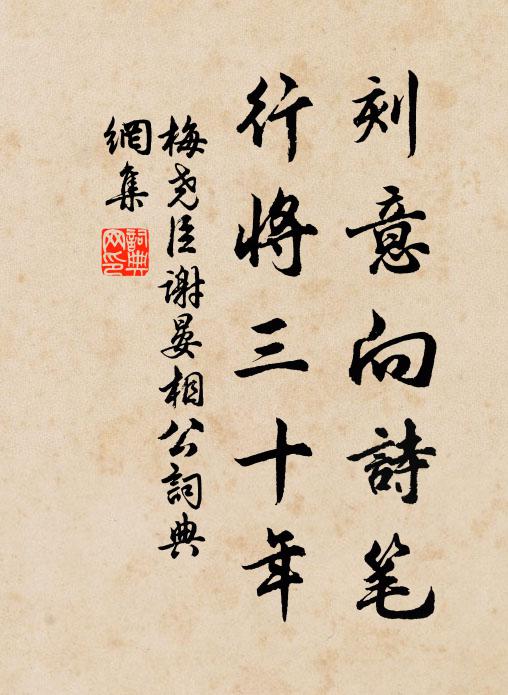 刻意向詩笔
行將三十年
梅尧臣谢晏相公詞典
網集
詞典
网印